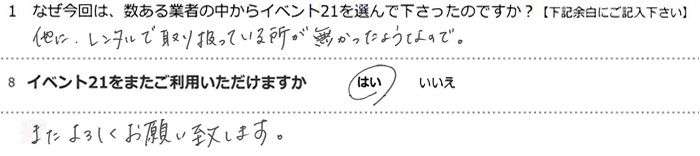 1 なぜ今回は、数ある業者の中からイベント21を選んで下さったのですか?【下記余白にご記入下さい】
他に、レンタルで取り扱っている所が無かったようなので。
8 イベント21をまたご利用いただけますか はい いいえ
またよろしくお願い致します。